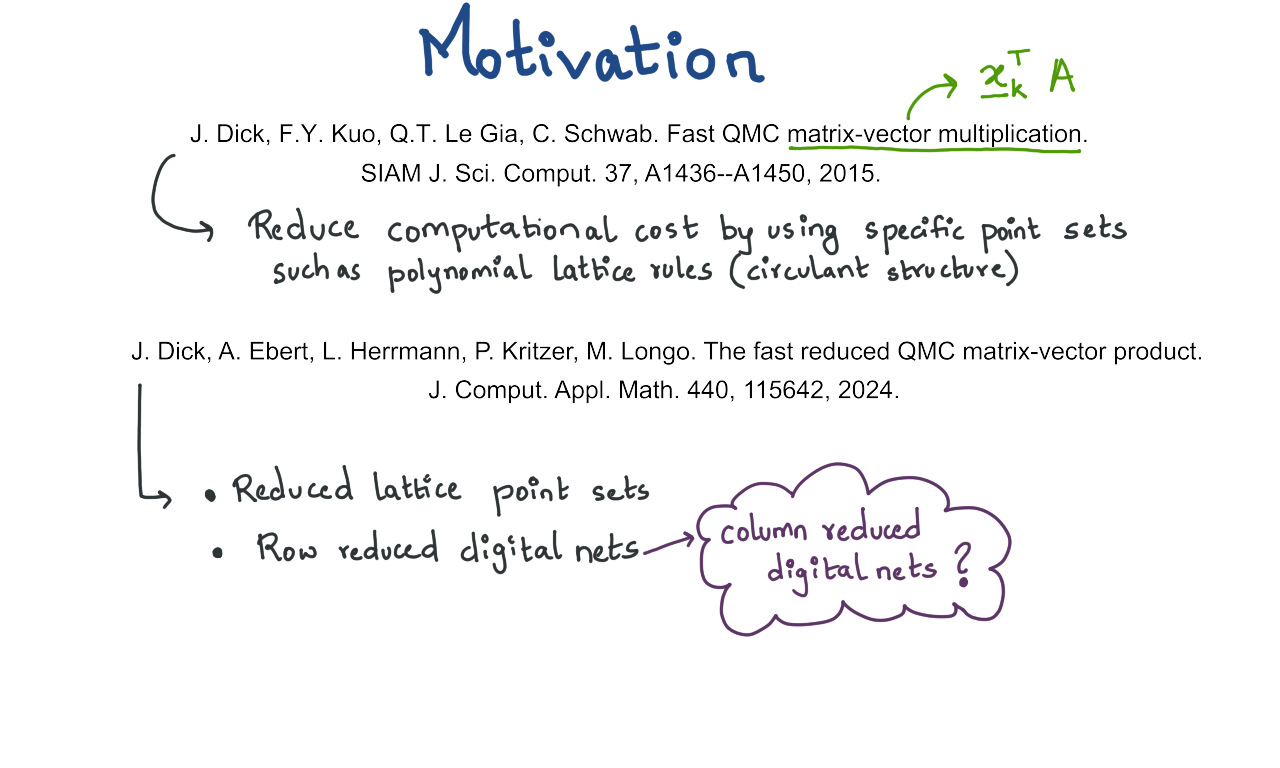 Motivation
x_k^T A
J. Dick, F.Y. Kuo, Q.T. Le Gia, C. Schwab. Fast QMC matrix-vector multiplication.
SIAM J. Sci. Comput. 37, A1436--A1450, 2015.
Reduce computational cost by using specific point sets
such as polynomial lattice rules (circulant structure)
J. Dick, A. Ebert, L. Herrmann, P. Kritzer, M. Longo. The fast reduced QMC matrix-vector product.
J. Comput. Appl. Math. 440, 115642, 2024.
• Reduced lattice point sets
• Row reduced digital nets
column reduced
digital nets ?